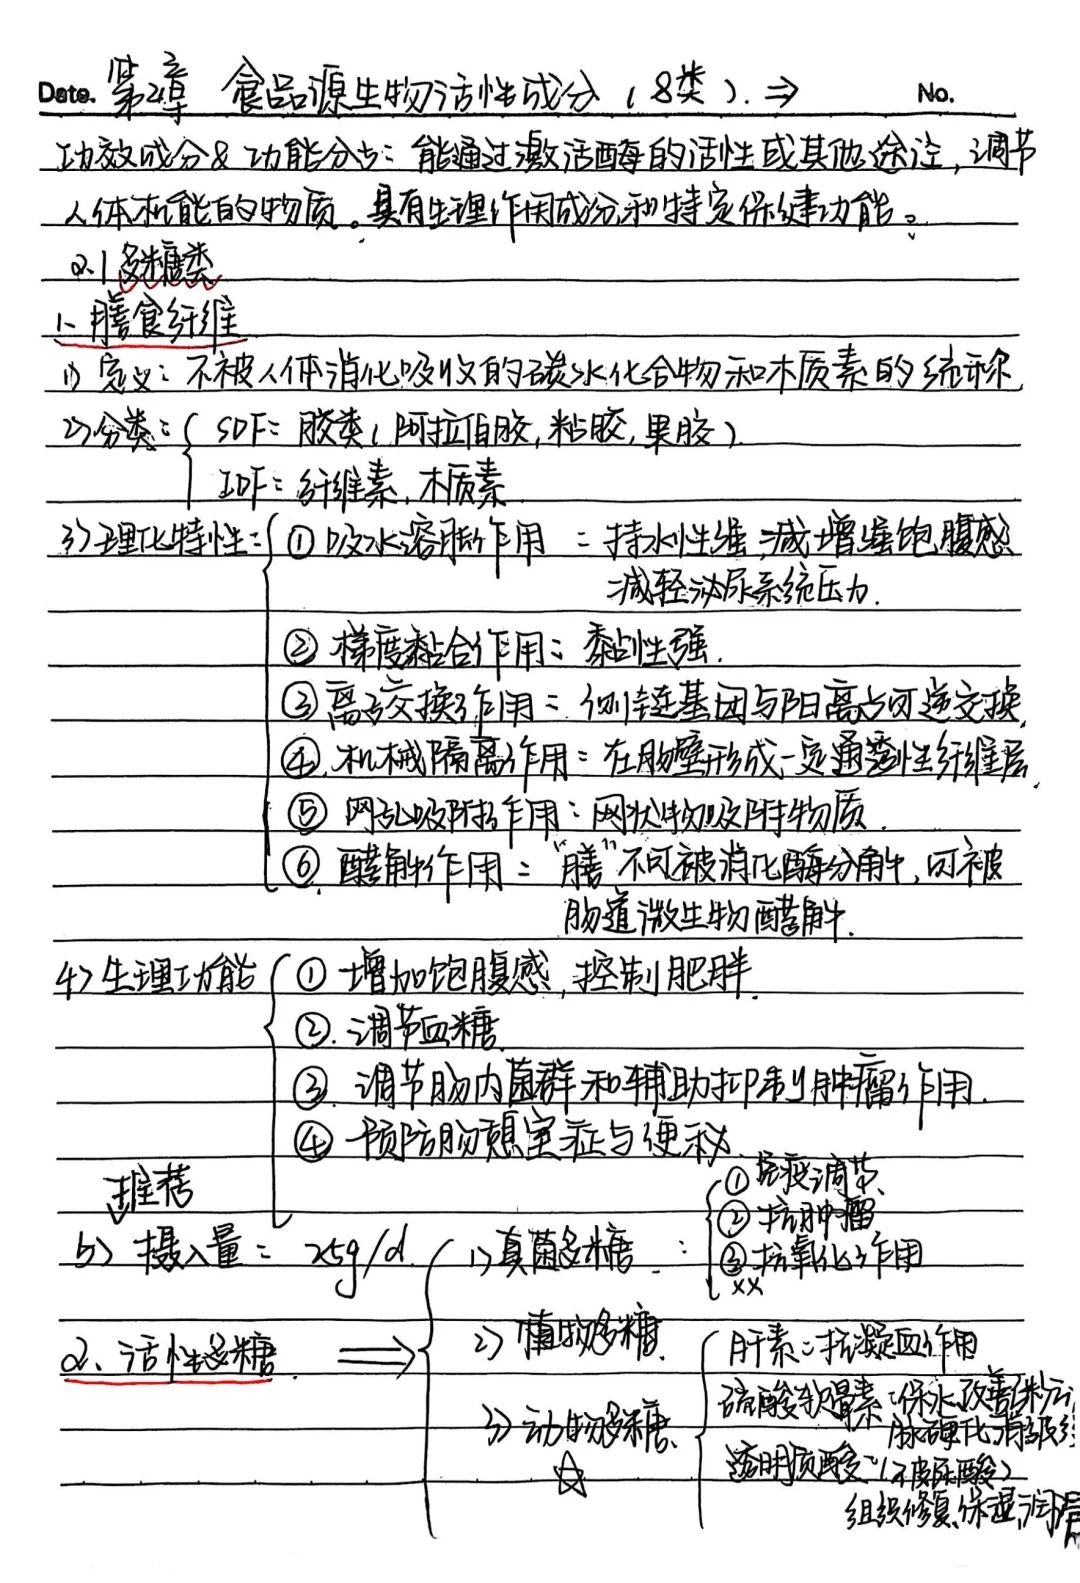 Date. 第2章 食品源生物活性成分（8类）. ⇒ No.
功效成分&功能分占: 能通过激活酶的活性或其他途径,调节
人体机能的物质。具有生理作用成分和特定保健功能。
2.1 多糖类
1、膳食纤维
1) 定义: 不被人体消化吸收的碳水化合物和木质素的统称
2) 分类: SDF: 胶类(阿拉伯胶,粘胶,果胶)
IDF: 纤维素,木质素
3) 理化特性: ① 吸水溶胀作用: 持水性强 减 增强饱腹感
减轻泌尿系统压力.
② 梯度黏合作用: 黏性强.
③ 离子交换作用: 侧链基因与阳离占可逆交换
④. 机械隔离作用: 在肠壁形成一定通透性纤维层.
⑤ 网孔吸附作用: 网状物吸附物质.
⑥. 酵解作用: “膳”不可被消化酶分解,可被
肠道微生物酵解.
4) 生理功能 ① 增加饱腹感,控制肥胖.
②. 调节血糖
③. 调节肠内菌群和辅助抑制肿瘤作用.
④ 预防肠憩室症与便秘.
推荐
5) 摄入量: 25g/d.
2、活性多糖 ⇒
1) 真菌多糖: ① 免疫调节
② 抗肿瘤
③ 抗氧化作用
xx
2) 植物多糖.
3) 动物多糖. ☆
肝素: 抗凝血作用
硫酸软骨素: 保水,改善
脉硬化,消
透明质酸: (
组织修复,保湿,润滑